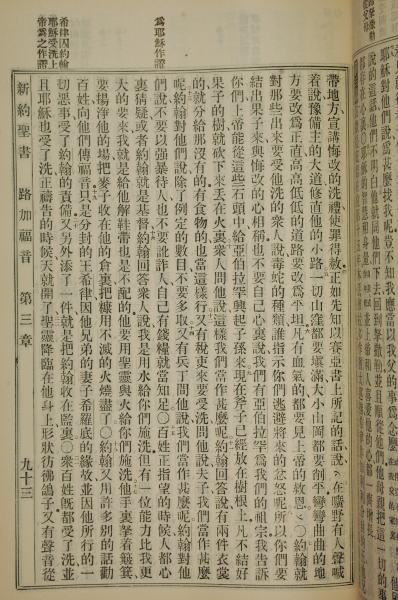 帶地方宣講悔改的洗禮使罪得赦正如先知以賽亞書上所記的話說在曠野有人聲喊
着說豫備主的大道修直他的小路一切山窪都要填滿大小山岡都要削平彎彎曲曲的地
方要改爲正直高高低低的道路要改爲平坦凡有血氣的都要見上帝的救恩○約翰就
對那些出來要受他洗的衆人說毒蛇的種類誰指示你們逃避將來的忿怒呢所以你們要
結出果子來與悔改的心相稱也不要自己心裏說我們有亞伯拉罕爲我們的祖宗我告訴
你們上帝能從這些石頭中給亞伯拉罕興起子孫來現在斧子已經放在樹根上凡不結好
果子的樹就砍下來丟在火裏衆人問他說這樣我們當作甚麼呢約翰回答說有兩件衣裳
的就分給那沒有的有食物的也當這樣行又有稅吏來要受洗問他說夫子我們當作甚麼
呢約翰對他們說除了例定的數目不要多取又有兵丁問他說我們當作甚麼呢約翰對他
們說不要以強暴待人也不要訛詐人自己有錢糧就當知足○百姓正指望的時候人都心
裏猜疑或者約翰就是基督約翰回答衆人說我是用水給你們施洗但有一位能力比我更
大的要來我就是給他解鞋帶也是不配的他要用聖靈與火給你們施洗他手裏拏着簸箕
要揚淨他的場把麥子收在他的倉裏把糠用不滅的火燒盡了○約翰又用許多別的話勸
百姓向他們傳福音只是分封的王希律因他兄弟的妻子希羅底的緣故並因他所行的一
切惡事受了約翰的責備又另外添了一件就是把約翰收在監裏○衆百姓旣都受了洗
且耶穌也受了洗正禱告的時候天就開了聖靈降臨在他身上形狀彷彿鴿子又有聲音從
新約聖書 路加福音 第三章 九十三
爲耶穌作證
希律囚約翰
耶穌受洗上
帝爲之作證